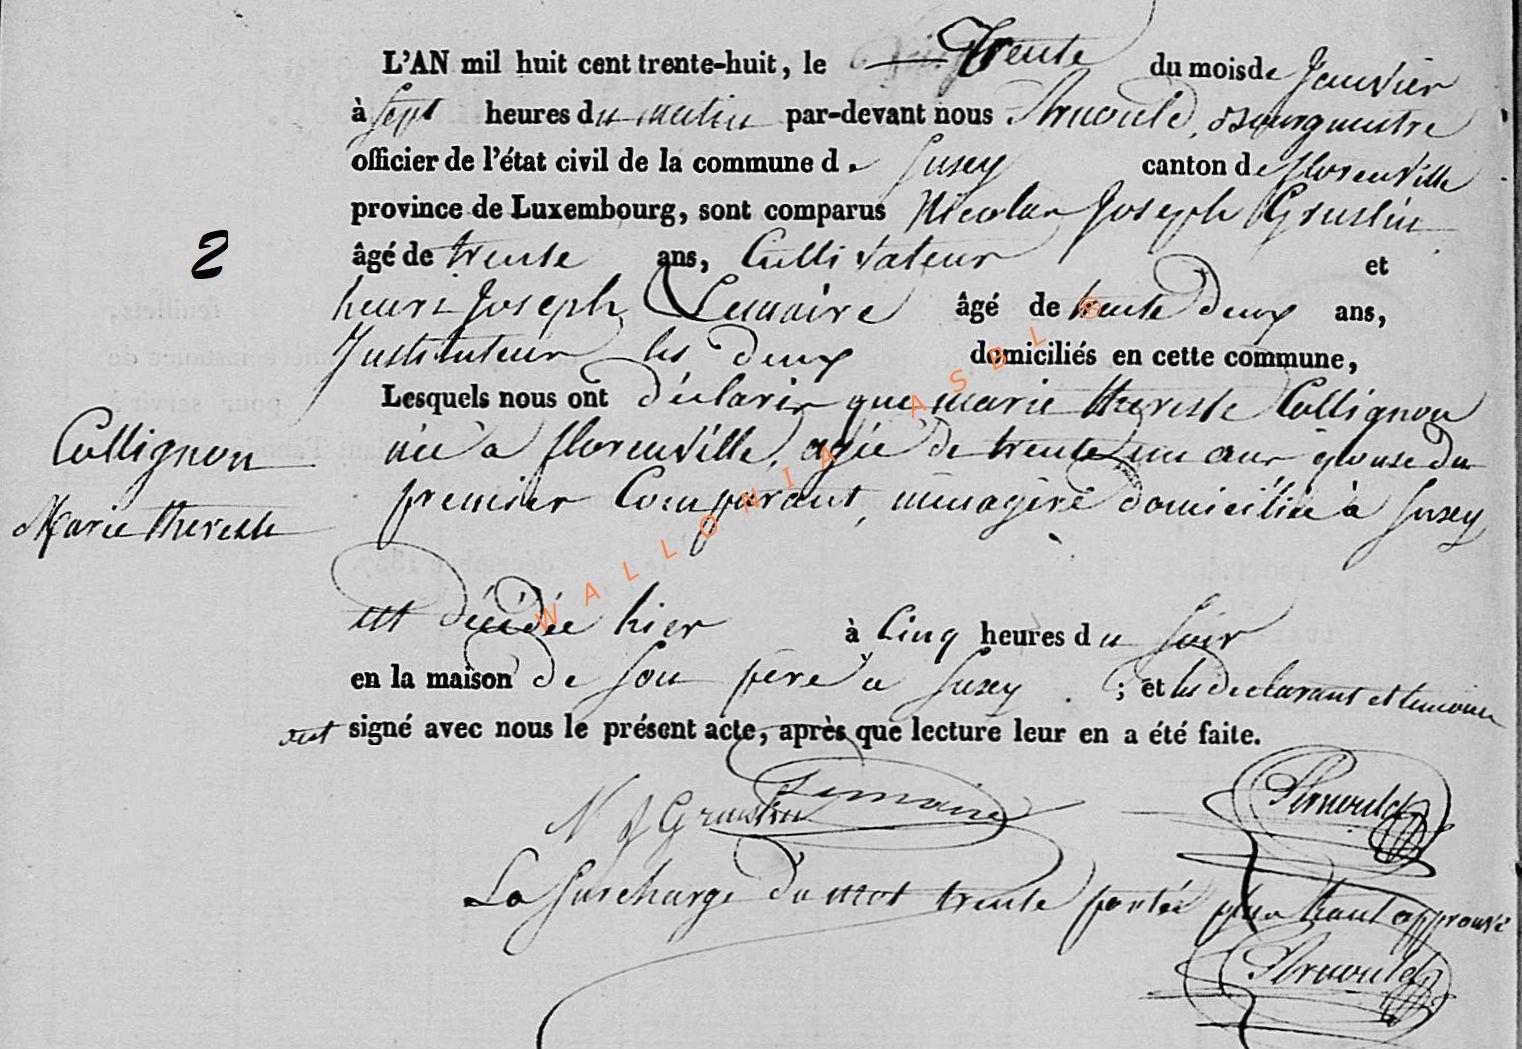 L'AN mil huit cent trente-huit, le trente du mois de janvier
à sept heures du matin par-devant nous Arnould, Bourgmestre
officier de l'état civil de la commune de Jusey canton de florenville
province de Luxembourg, sont comparus Nicolas Joseph Gruslin
âgé de trente ans, Cultivateur et
henri Joseph Lemaire âgé de trente deux ans,
Instituteur les deux domiciliés en cette commune,
Lesquels nous ont déclaré que marie therese Collignon
née a florenville, agée de trente un ans epouse du
premier Comparant, ménagère domiciliée à Jusey
est décédée hier à Cinq heures du soir
en la maison de son père a Jusey ; et les declarant et temoin
ont signé avec nous le présent acte, après que lecture leur en a été faite.
2
Collignon
Marie therese
N J Gruslin Lemaire Arnould
La surcharge du mot trente portée plus haut approuvé
Arnould
WALLONIA ASBL ®